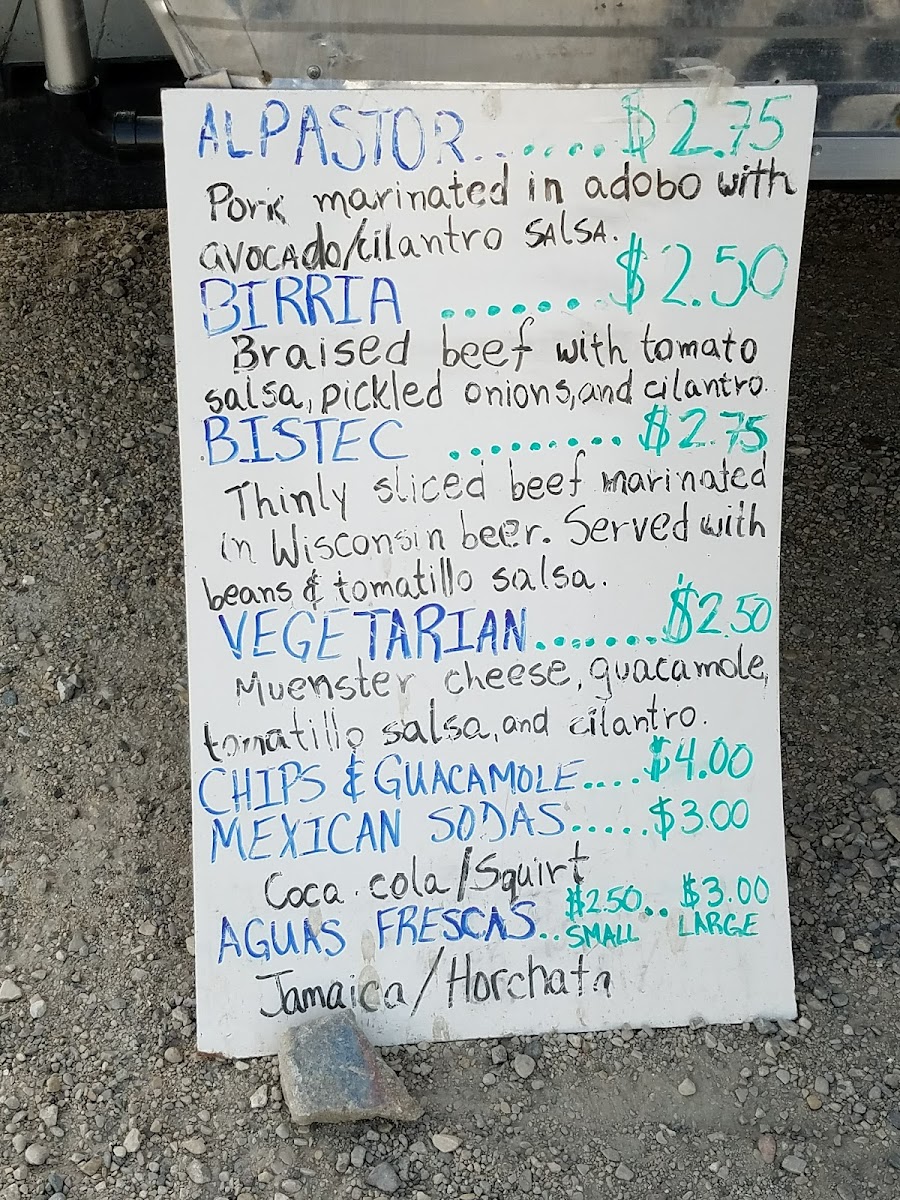 ALPASTOR.......$2.75
Pork marinated in adobo with
avocado/cilantro SALSA.
BIRRIA .......$2.50
Braised beef with tomato
salsa, pickled onions, and cilantro.
BISTEC .........$2.75
Thinly sliced beef marinated
in Wisconsin beer. Served with
beans & tomatillo salsa.
VEGETARIAN.......$2.50
Muenster cheese, guacamole,
tomatillo salsa, and cilantro.
CHIPS & GUACAMOLE....$4.00
MEXICAN SODAS.....$3.00
Coca.cola/Squirt
AGUAS FRESCAS..$2.50..$3.00
SMALL LARGE
Jamaica/Horchata